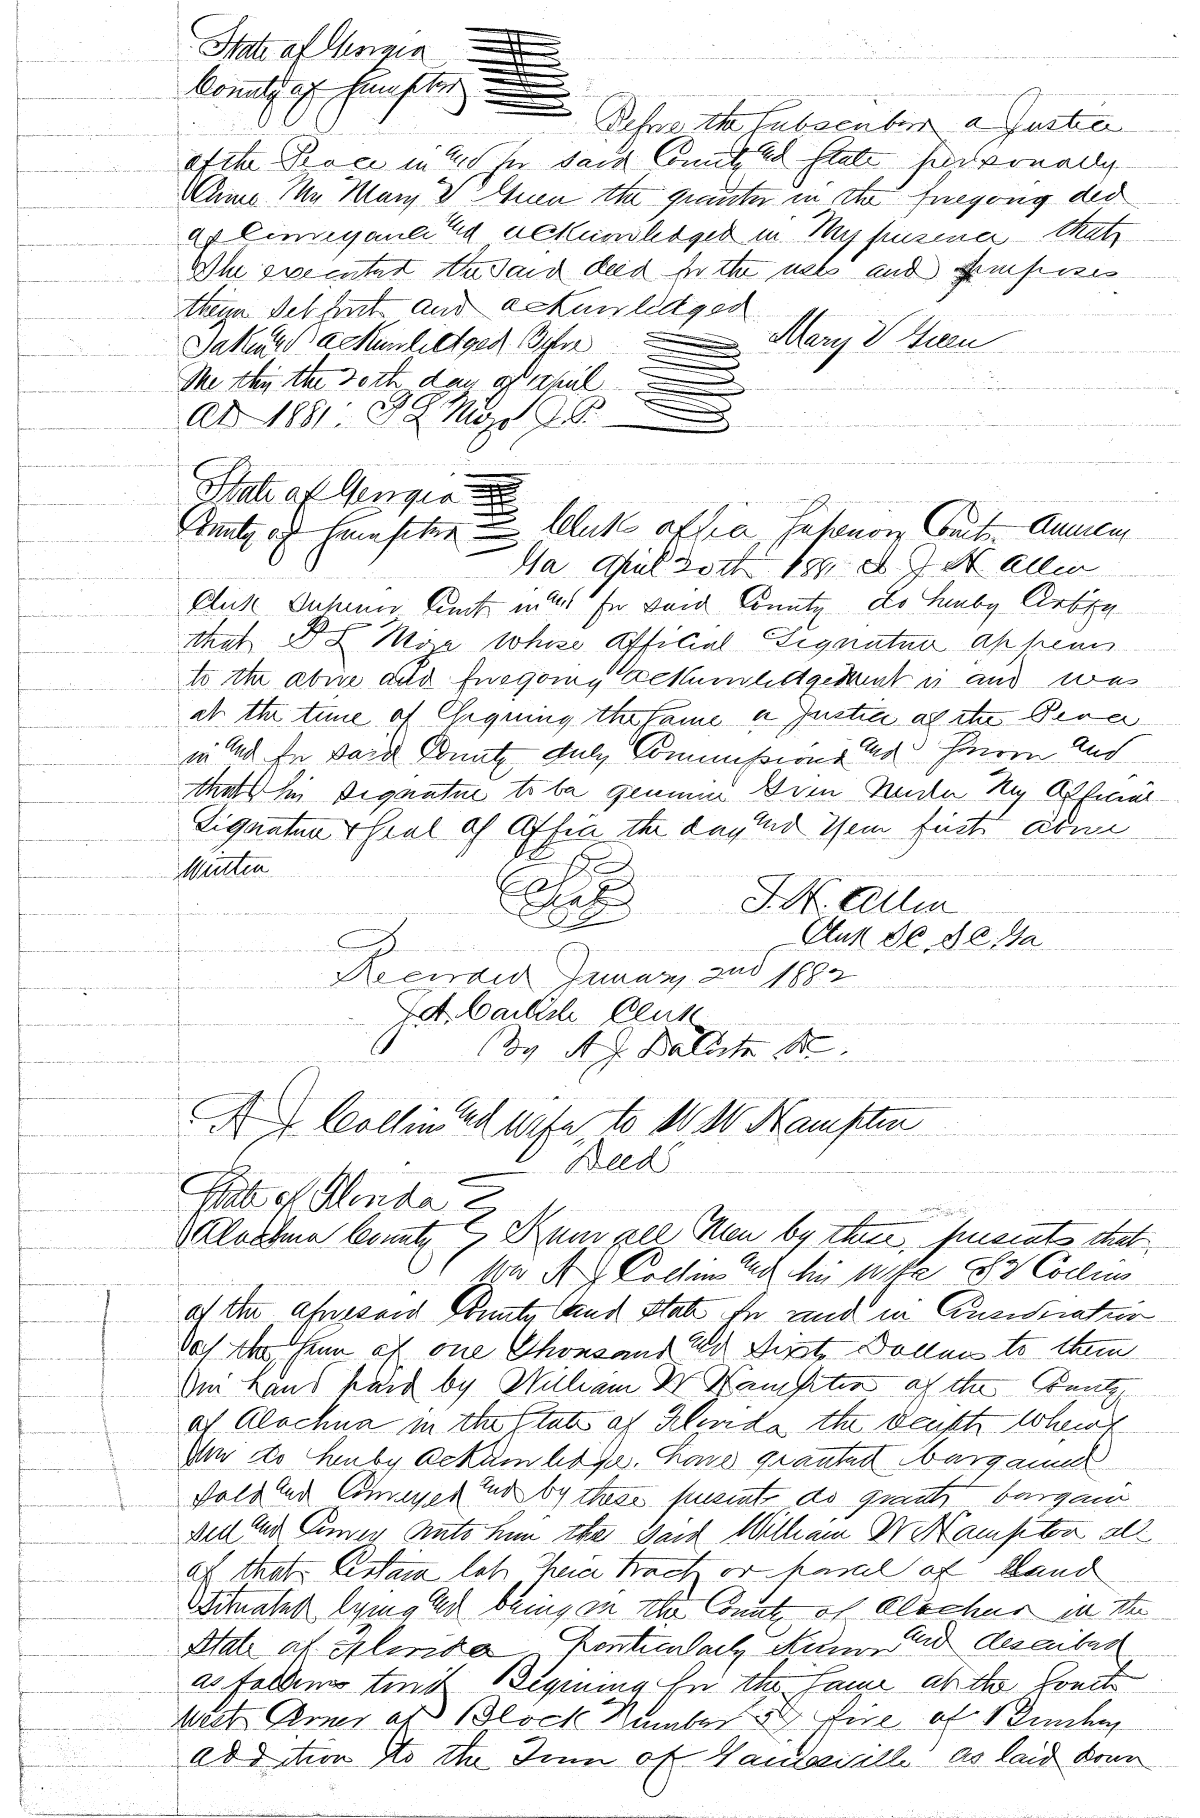 State of Georgia
County of Sumpter
Before the Subscriber a Justice
of the Peace in and for said County and State personally
Came Mrs Mary V Green the grantor in the foregoing ded
of Conveyance and acknowledged in My presence that
She executed the said deed for the uses and purposes
therein Set forth and acknowledged
Taken and acknowledged Before
Mary V Green
Me this the 20th day of April
AD 1881. J.P.
State of Georgia
County of Sumpter Clerks office Superior Court Americus
Ga April 20th 1881 I J H Allen
Clerk Superior Court in and for said County do hereby Certify
that whose official Signature appears
to the above and foregoing acknowledgement is and was
at the time of Signing the Same a Justice of the Peace
in and for said County duly Commissioned and Sworn and
that his signature to be genuine Given Under My Official
Signature & Seal of Office the day and Year first above
written
Seal
J. H. Allen
Clerk SC, SC, Ga
Recorded January 2nd 1882
J A. Carlisle Clerk
By A J DaCosta DC.
A J Collins and wife to W W Hampton
Deed
State of Florida
Alachua County Know all Men by these, presents that
We A J Collins and his wife S V Collins
of the aforesaid County and State for and in Consideration
of the Sum of one Thousand and Sixty Dollars to them
in hand paid by William W Hampton of the County
of Alachua in the State of Florida the receipt whereof
we do hereby acknowledge. have granted bargained
sold and Conveyed and by these presents do grant bargain
sell and Convey unto him the said William W Hampton all
of that Certain lot piece tract or parcel of Land
Situated lying and being in the County of Alachua in the
State of Florida Particularly Known and described
as follows towit Begining for the Same at the South
west Corner of Block Number 5 five of
addition to the Town of Gainesville as laid down